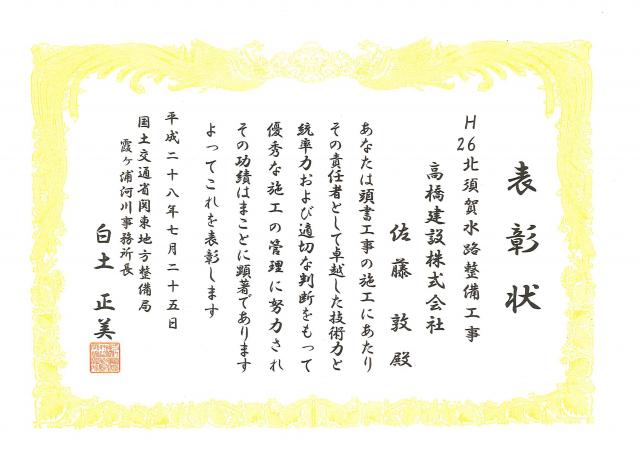 表彰状
H26北須賀水路整備工事
高橋建設株式会社
佐藤敦殿
あなたは頭書工事の施工にあたり
その責任者として卓越した技術力と
統率力および適切な判断をもって
優秀な施工の管理に努力され
その功績はまことに顕著であります
よってこれを表彰します
平成二十八年七月二十五日
国土交通省関東地方整備局
霞ヶ浦河川事務所長
白土正美